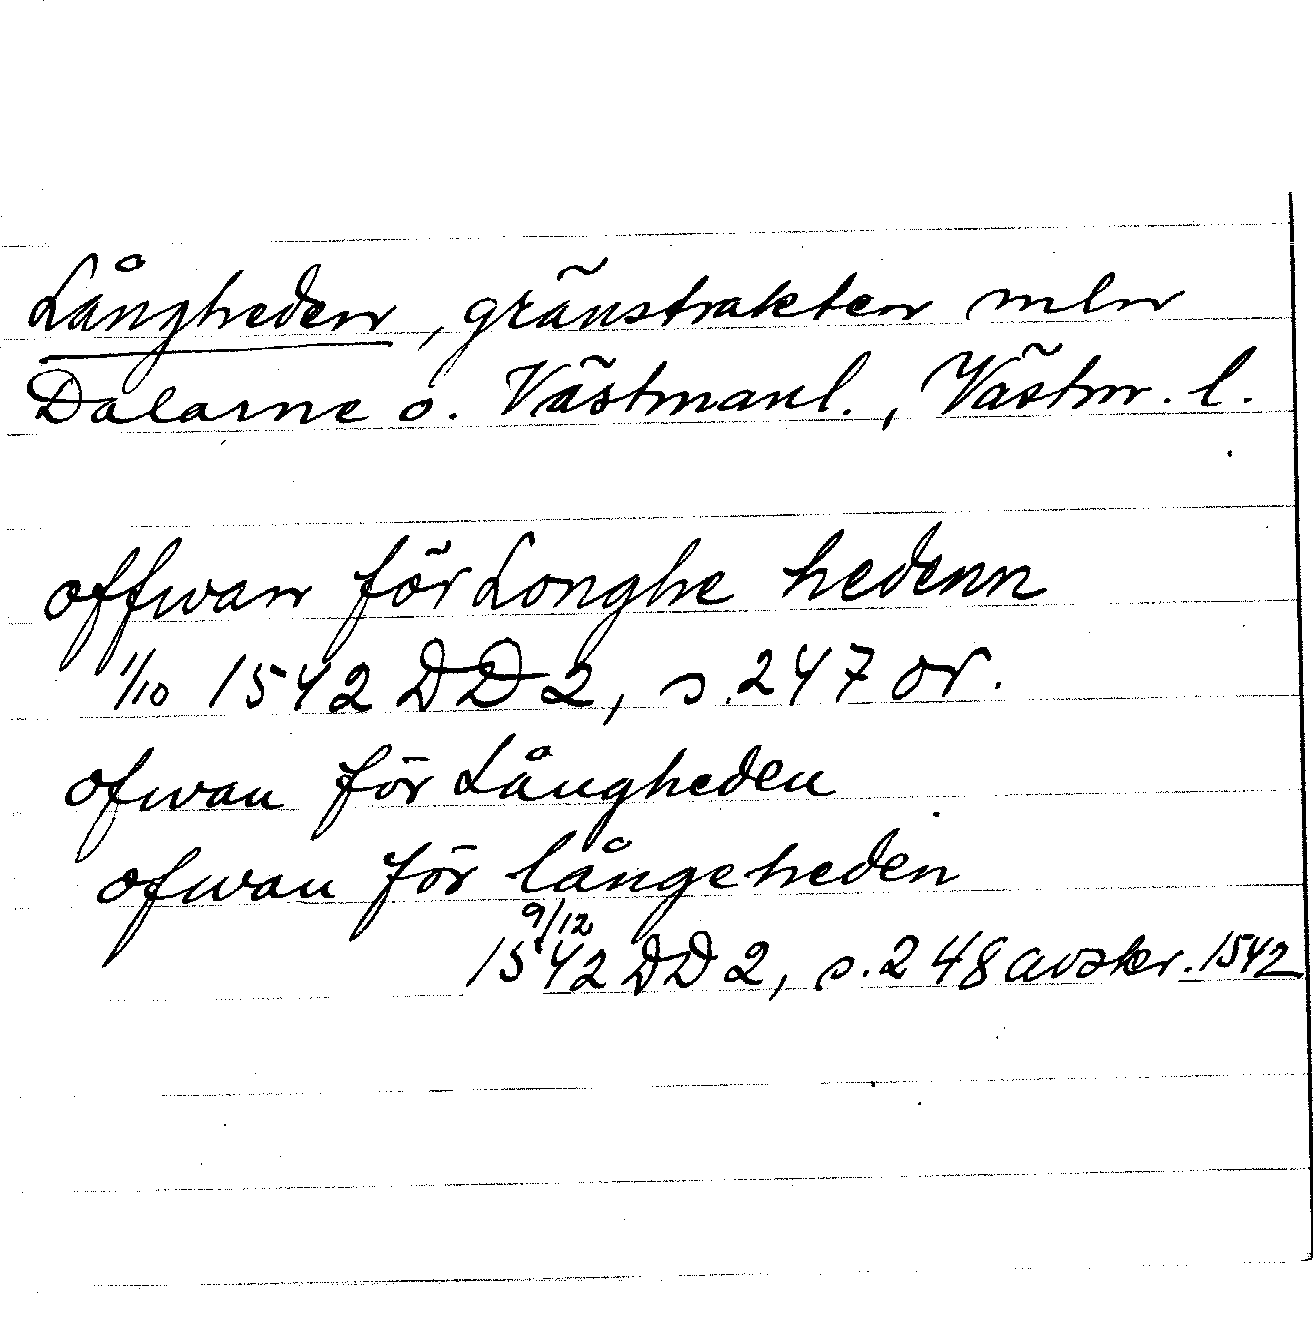 Långheden, gränstrakten mln
Dalarne o. Västmanl., Västm. l.
offwan för Longhe hedenn
1/10 1542 DD 2, s. 247 or.
ofwan för Långheden
ofwan för långeheden
9/12
1542 DD 2, s. 248 avskr. 1542